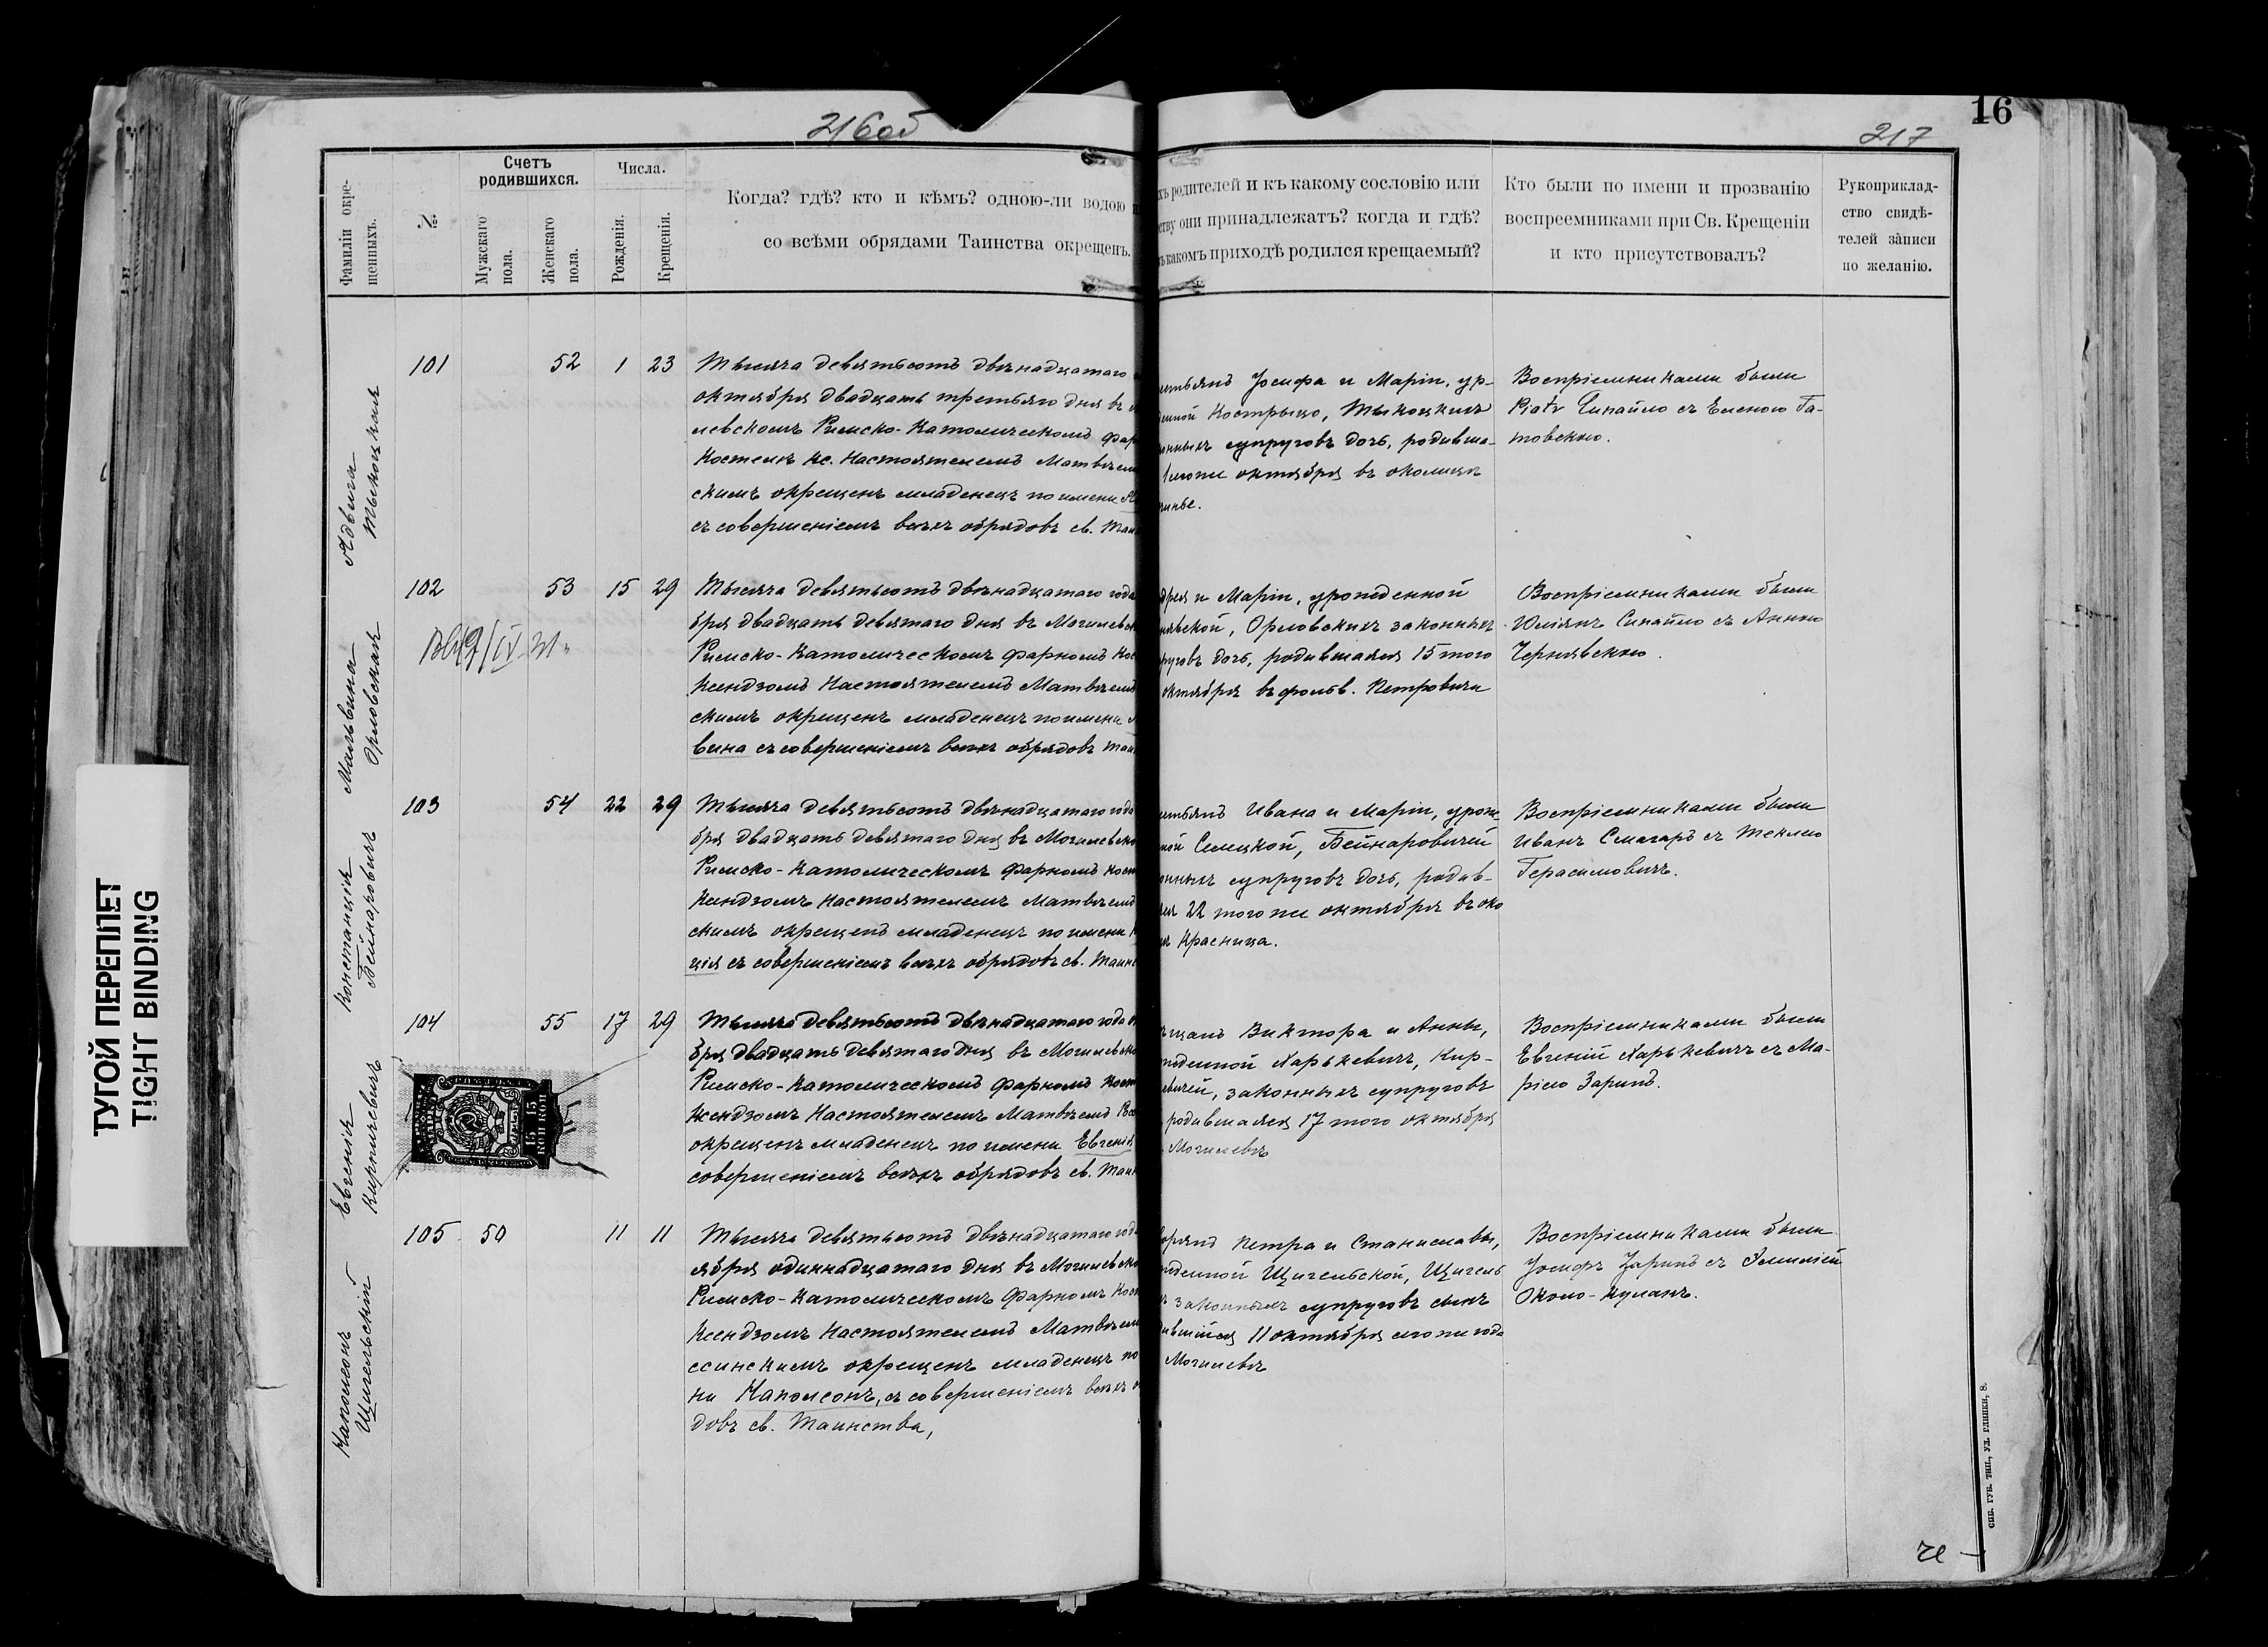 216об
16
217
Фамиліи окре-
щенныхъ.
№
Счетъ
родившихся.
Мужскаго
пола.
Женскаго
пола.
Числа.
Рожденія.
Крещенія.
Когда? гдѣ? кто и кѣмъ? одною-ли водою
со всѣми обрядами Таинства окрещенъ.
хъ родителей и къ какому сословію или
ству они принадлежатъ? когда и гдѣ?
какомъ приходѣ родился крещаемый?
Кто были по имени и прозванію
воспреемниками при Св. Крещеніи
и кто присутствовалъ?
Рукоприклад-
ство свидѣ-
телей записи
по желанію.
Ядвига
101 52 1 23
Тысяча девятьсотъ двѣнадцатаго
октября двадцать третьяго дня въ
левскомъ Римско-Католическомъ фар
Костелѣ Кс. Настоятелемъ Матвѣем
скимъ окрещенъ младенецъ по имени
съ совершеніемъ всѣхъ обрядовъ св. Таи
Іосифа и Маріи, ур-
Кострыцо,
супруговъ дочь, родивша-
октября въ околицѣ
Воспріемниками были
съ Еленою Га-
товскою.
Мальвина
Орловская
102 53 15 29
Тысяча девятьсотъ двѣнадцатаго года
бря двадцать девятаго дня въ Могилевск
Римско-Католическомъ фарномъ Кос
Ксендзомъ Настоятелемъ Матвѣемъ
скимъ окрещенъ младенецъ по имени
вина съ совершеніемъ всѣхъ обрядовъ Таи
дрея и Маріи, урожденной
Орловскихъ законныхъ
руговъ дочь, родившаяся 15 того
октября въ фольв. Петровичи
Воспріемниками были
Юліянъ Сипайло съ Анною
Чернявскою.
Констанція
Бейнаровичъ
103 54 22 29
Тысяча девятьсотъ двѣнадцатаго года
бря двадцать девятаго дня въ Могилевско
Римско-Католическомъ фарномъ Кост
Ксендзомъ Настоятелемъ Матвѣемъ
скимъ окрещенъ младенецъ по имени К
ція съ совершеніемъ всѣхъ обрядовъ св. Таинс
Ивана и Маріи, урож
ной Селицкой, Бейнаровичей
онныхъ супруговъ дочь, родив-
22 того же октября въ око
Красница.
Воспріемниками были
Иванъ Смагаръ съ Теклею
Герасимовичъ.
Евгенія
Кирпичевичъ
104 55 17 29
Тысяча девятьсотъ двѣнадцатаго года
бря двадцать девятаго дня въ Могилевско
Римско-Католическомъ фарномъ Кост
Ксендзомъ Настоятелемъ Матвѣемъ
окрещенъ младенецъ по имени Евгенія
совершеніемъ всѣхъ обрядовъ св. Таин
щанъ Виктора и Анны,
жденной Харькевичъ, Кир-
евичей, законныхъ супруговъ
родившаяся 17 того октября
Могилевѣ
Воспріемниками были
Евгеній Харькевичъ съ Ма-
ріею Заринъ.
15 15
КОП КОП
Наполеонъ
Щигельскій
105 50 11 11
Тысяча девятьсотъ двѣнадцатаго год
ября одиннадцатаго дня въ Могилевско
Римско-Католическомъ Фарномъ Кост
Ксендзомъ Настоятелемъ Матвѣем
ссинскимъ окрещенъ младенецъ по
ни Наполеонъ, съ совершеніемъ всѣхъ о
довъ св. Таинства,
орянъ Петра и Станиславы,
жденной Щигельской, Щигель
законныхъ супруговъ сынъ
дившійся 11 октября сего же года
Могилевѣ
Воспріемниками были
Іосифъ Заринъ съ Эмиліей
Около-Кулакъ.
ТУГОЙ ПЕРЕПЛЕТ
TIGHT BINDING
СПБ. ГУБ. ТИП., УЛ. ГЛИНКИ, 8.